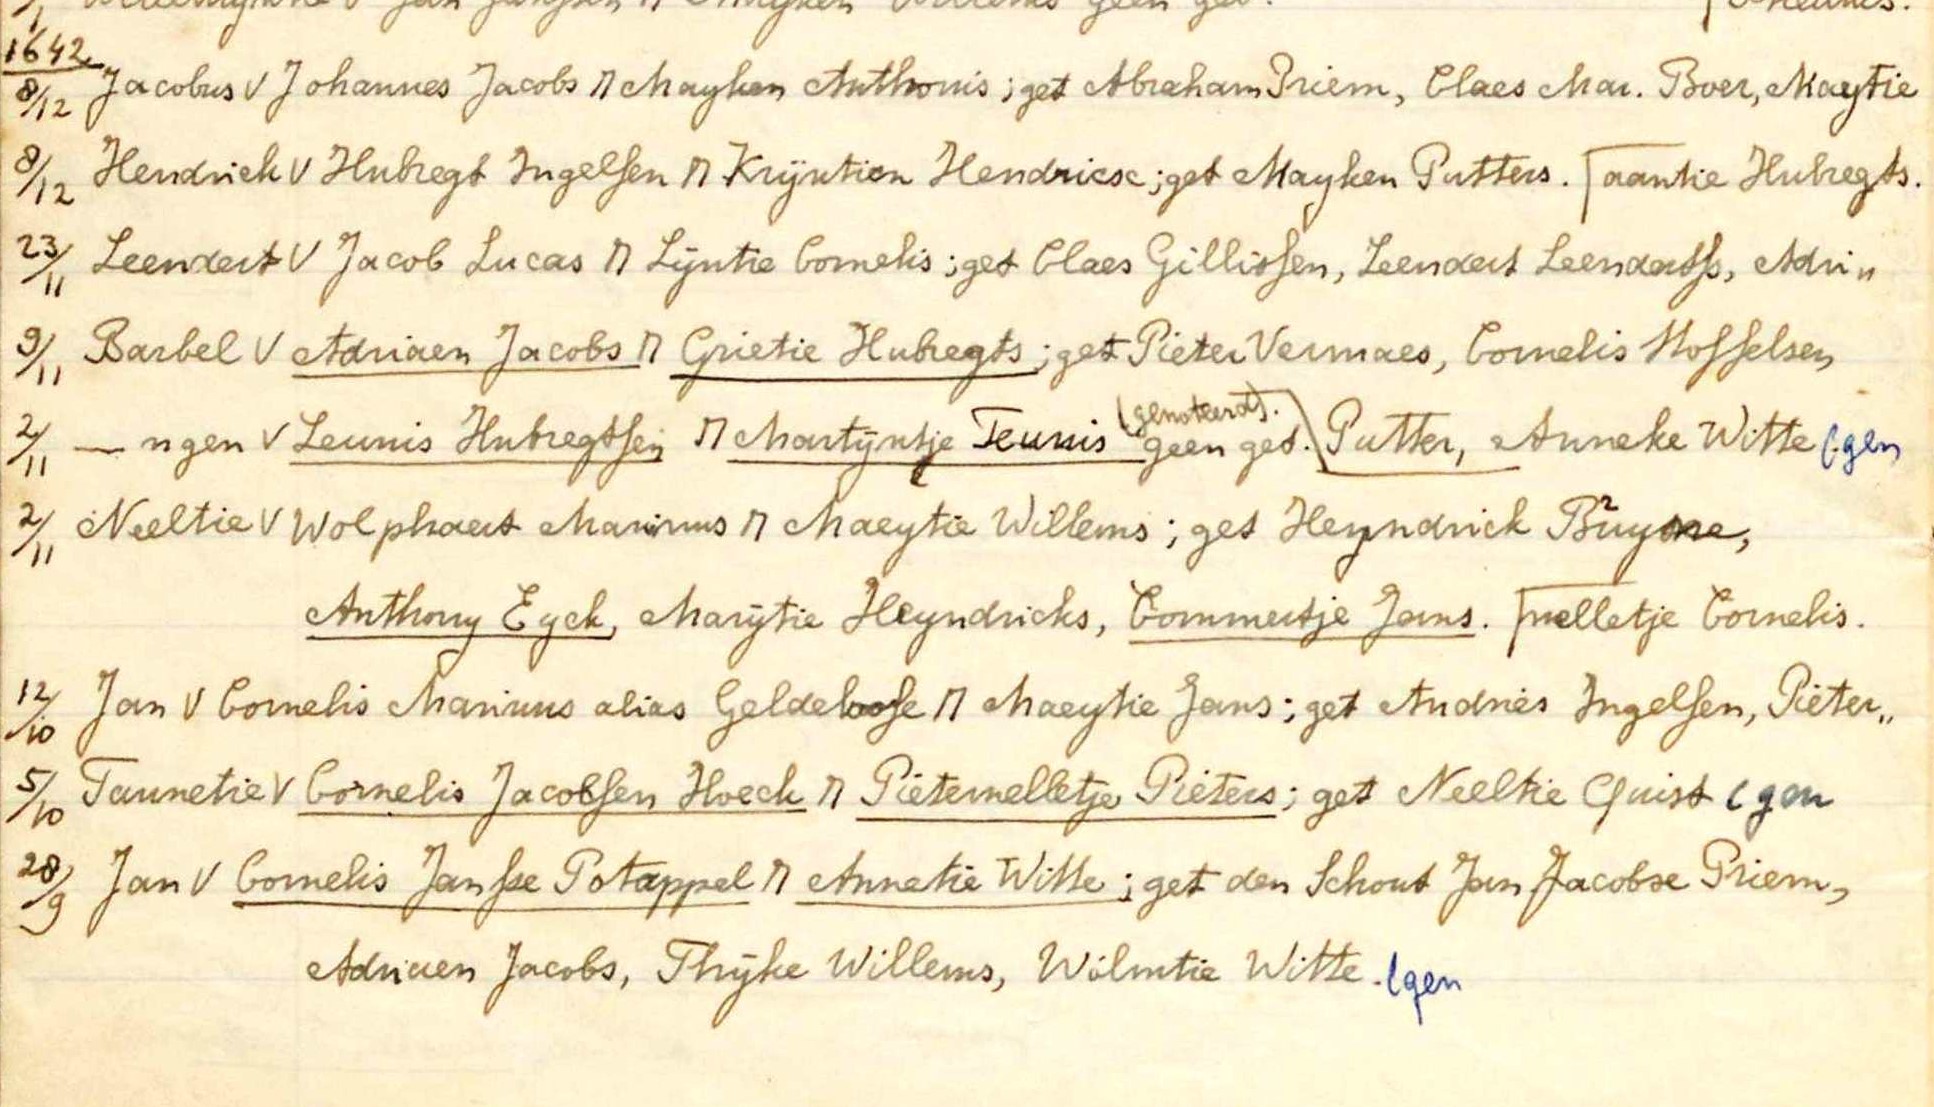 geen get.
1642
8/12 Jacobus V Johannes Jacobs Л Mayken Anthonis; get Abraham Priem, Claes Mar. Boer, Maytie
8/12 Hendrick V Hubregt Ingelsen Л Krijntien Hendricse; get Mayken Putters. [aantie Hubregts.
23/11 Leendert V Jacob Lucas Л Lijntie Cornelis; get Claes Gillissen, Leendert Leendertss, Adri„
9/11 Barbel V Adriaen Jacobs Л Grietie Hubregts; get Pieter Vermaes, Cornelis Moffelsen,
(genoteerd).
2/11 — ngen V Leunis Hubregtsen Л Martijntje Teunis geen get. Putter, Anneke Witte (gen
2/11 Neeltie V Wolphaert Marinus Л Maeytie Willems; get Heyndrick
Anthony Eyck, Marijtie Heyndricks, Commertje Jans. [nelletje Cornelis.
12/10 Jan V Cornelis Marinus alias Geldeloose Л Maeytie Jans; get Andries Ingelsen, Pieter„
5/10 Tannetie V Cornelis Jacobsen Hoeck Л Pieternelletje Pieters; get Neeltie Quist (gen
28/9 Jan V Cornelis Jansse Potappel Л Annetie Witte; get den Schout Jan Jacobse Priem,
Adriaen Jacobs, Thijke Willems, Wolmtie Witte. (gen